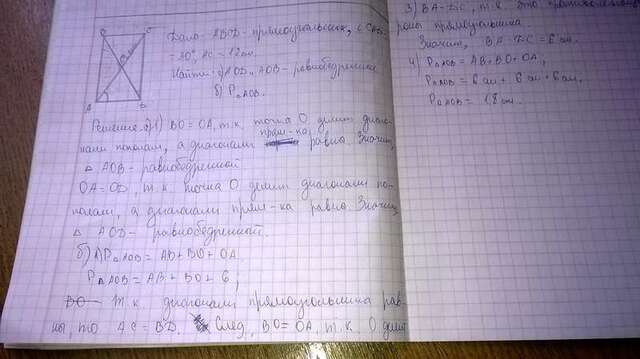 Дано - ABCD - прямоугольник, ∠ CAD -
- 30°, AC = 12 см.
Найти: а) AOD и AOB - равнобедренные
б) P△AOB.
Решение: а) 1) BO = OA, т.к. точка O делит диаго-
нали пополам, а диагонали прям-ка равны. Значит,
△ AOB - равнобедренной
OA = OD, т.к. точка O делит диагонали по-
полам, а диагонали прям-ка равны. Значит,
△ AOD - равнобедренной.
б) 1) P△AOB = AB + BO + OA.
P△AOB = AB + BO + 6;
т.к. диагонали прямоугольника рав-
ны, то AC = BD. След, BO = OA, т.к. O делит
3) BA = DC, т.к. это противополож
роны прямоугольника
Значит, BA = DC = 6 см.
4) P△AOB = AB + BO + OA;
P△AOB = 6 см + 6 см + 6 см.
P△AOB = 18 см.
A
B